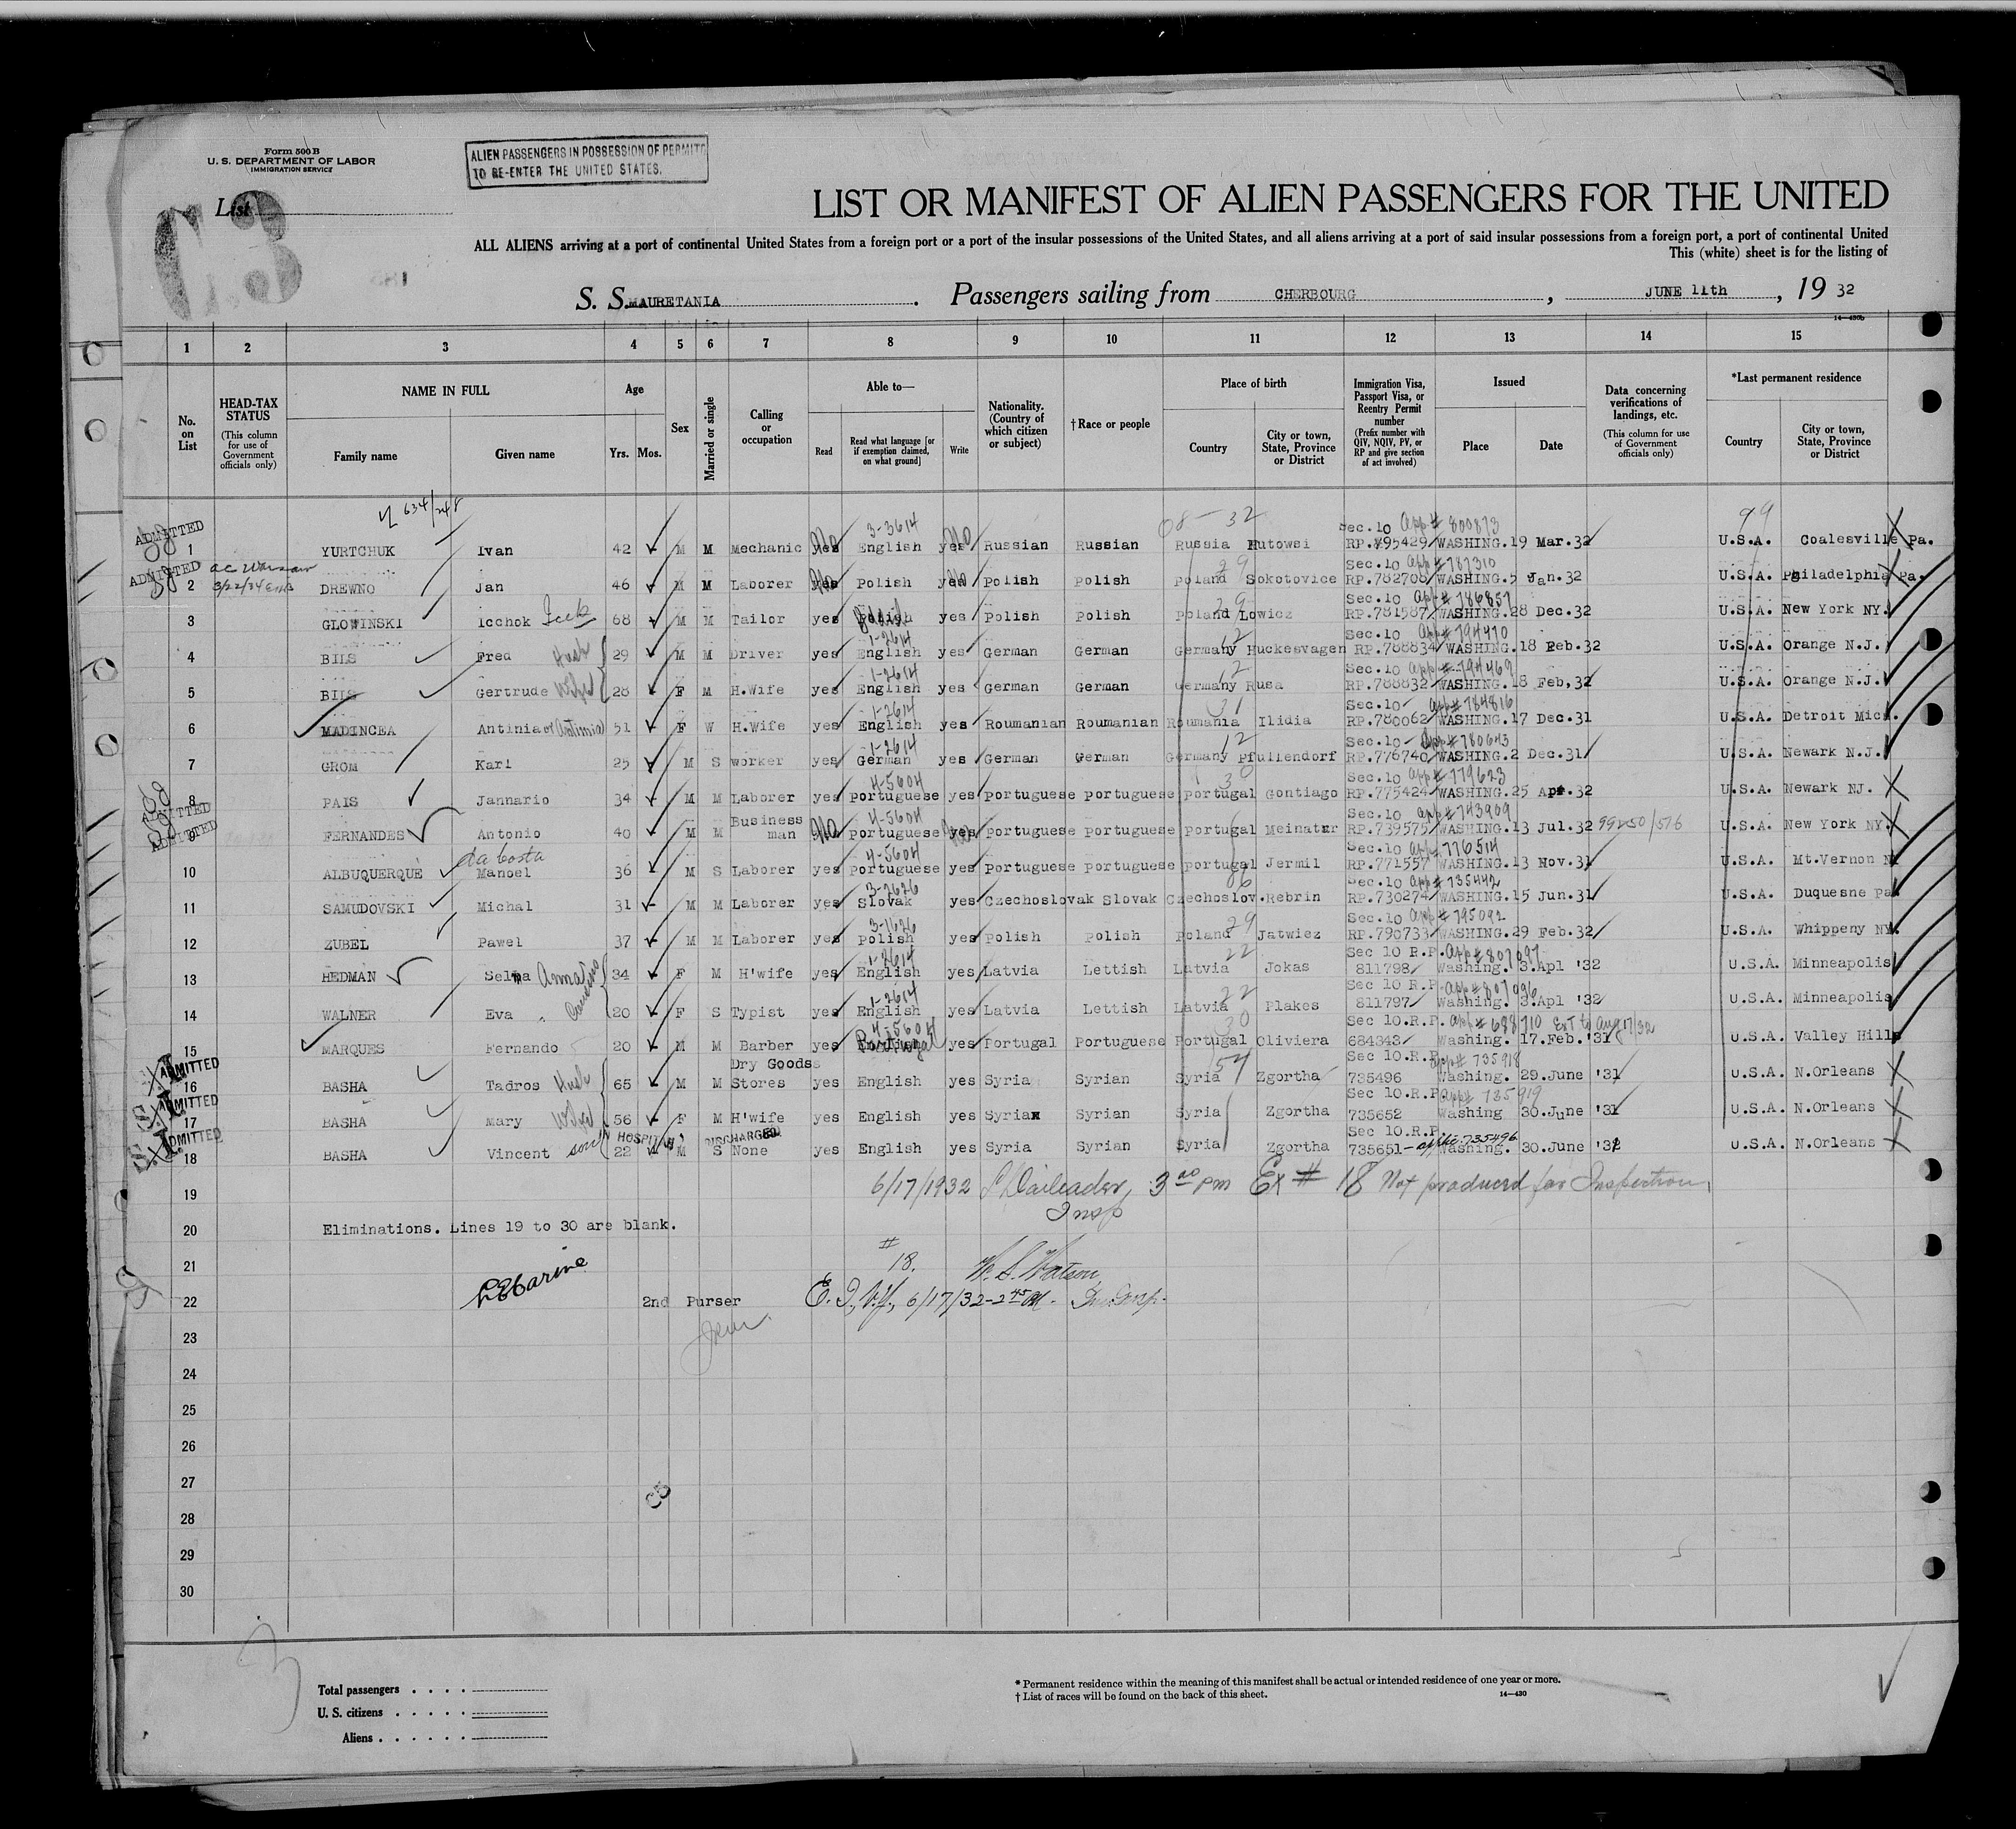 Form 500 B
U. S. DEPARTMENT OF LABOR
IMMIGRATION SERVICE
ALIEN PASSENGERS IN POSSESSION OF PERMITS
TO RE-ENTER THE UNITED STATES.
List
C3
LIST OR MANIFEST OF ALIEN PASSENGERS FOR THE UNITED
ALL ALIENS arriving at a port of continental United States from a foreign port or a port of the insular possessions of the United States, and all aliens arriving at a port of said insular possessions from a foreign port, a port of continental United
This (white) sheet is for the listing of
S. S. MAURETANIA . Passengers sailing from CHERBOURG , JUNE 11th , 19 32
14—430b
1 2 3 4 5 6 7 8 9 10 11 12 13 14 15
No. on List
HEAD-TAX STATUS (This column for use of Government officials only)
NAME IN FULL
Family name Given name
Age
Yrs. Mos.
Sex
Married or single
Calling or occupation
Able to—
Read Read what language [or if exemption claimed, on what ground] Write
Nationality. (Country of which citizen or subject)
†Race or people
Place of birth
Country City or town, State, Province or District
Immigration Visa, Passport Visa, or Reentry Permit number (Prefix number with QIV, NQIV, PV, or RP and give section of act involved)
Issued
Place Date
Data concerning verifications of landings, etc. (This column for use of Government officials only)
*Last permanent residence
Country City or town, State, Province or District
634/248
3-3614 08-32 Sec.10 App# 800873 99
ADMITTED 1 YURTCHUK Ivan 42 M M Mechanic yes No English yes No Russian Russian Russia Hutowsi RP.795429 WASHING.19 Mar.32 U.S.A. Coalesville Pa.
a.c. Warsaw 29 Sec.10 App# 787310
ADMITTED 2 3/22/34 DREWNO Jan 46 M M Laborer yes No Polish yes No Polish Polish Poland Sokotovice RP.782708 WASHING.5 Jan.32 U.S.A. Philadelphia Pa.
29 Sec.10 App# 786857
3 GLOWINSKI Icchok Icek 68 M M Tailor yes Polish yes Polish Polish Poland Lowicz RP.781587 WASHING.28 Dec.32 U.S.A. New York NY.
1-2614 12 Sec.10 App# 794470
4 BILS Fred Husb 29 M M Driver yes English yes German German Germany Huckesvagen RP.788834 WASHING.18 Feb.32 U.S.A. Orange N.J.
1-2614 12 Sec.10 App# 794469
5 BILS Gertrude Wife 28 F M H.Wife yes English yes German German Germany Rusa RP.788832 WASHING.18 Feb,32 U.S.A. Orange N.J.
1-2614 31 Sec.10 App# 784816
6 MADINCEA Antinia or Antimia 51 F W H.Wife yes English yes Roumanian Roumanian Roumania Ilidia RP.780062 WASHING.17 Dec.31 U.S.A. Detroit Mich.
1-2614 12 Sec.10 App# 780643
7 GROM Karl 25 M S worker yes German yes German German Germany Pfullendorf RP.776740 WASHING.2 Dec.31 U.S.A. Newark N.J.
4-5604 30 Sec.10 App# 779623
8 PAIS Jannario 34 M M Laborer yes portuguese yes portuguese portuguese portugal Gontiago RP.775424 WASHING.25 Apr.32 U.S.A. Newark NJ.
ADMITTED Business 4-5604 Sec.10 App# 743909
ADMITTED 9 FERNANDES Antonio 40 M M man No portuguese yes portuguese portuguese portugal Meinater RP.739575 WASHING.13 Jul.32 99250/516 U.S.A. New York NY.
da Costa 4-5604 Sec.10 App# 776514
10 ALBUQUERQUE Manoel 36 M S Laborer yes portuguese yes portuguese portuguese portugal Jermil RP.771557 WASHING.13 Nov.31 U.S.A. Mt.Vernon N
3-2626 06 Sec.10 App# 735442
11 SAMUDOVSKI Michal 31 M M Laborer yes Slovak yes Czechoslovak Slovak Czechoslov. Rebrin RP.730274 WASHING.15 Jun.31 U.S.A. Duquesne Pa.
3-1626 29 Sec.10 App# 795092
12 ZUBEL Pawel 37 M M Laborer yes Polish yes Polish Polish Poland Jatwiez RP.790733 WASHING.29 Feb.32 U.S.A. Whippeny NY.
1-2614 22 Sec 10 R.P. App# 807097
13 HEDMAN Selma 34 F M H'wife yes English yes Latvia Lettish Latvia Jokas 811798 Washing. 3.Apl '32 U.S.A. Minneapolis
1-2614 22 Sec 10 R.P. App# 807096
14 WALNER Eva 20 F S Typist yes English yes Latvia Lettish Latvia Plakes 811797 Washing. 3.Apl '32 U.S.A. Minneapolis
4-5604 30 Sec 10.R.P. App# 688710 Ext to Aug 17/32
15 MARQUES Fernando 20 M M Barber yes Portugal yes Portugal Portuguese Portugal Oliviera 684343 Washing. 17.Feb.'31 U.S.A. Valley Hills
ADMITTED Dry Goods 54 Sec 10.R.P. App# 735918
16 BASHA Tadros Husb 65 M M Stores yes English yes Syria Syrian Syria Zgortha 735496 Washing. 29.June '31 U.S.A. N.Orleans
ADMITTED Sec 10.R.P. App# 735919
17 BASHA Mary Wife 56 F M H'wife yes English yes Syria Syrian Syria Zgortha 735652 Washing 30.June '31 U.S.A. N.Orleans
ADMITTED IN HOSPITAL DISCHARGED Sec 10.R.P.
18 BASHA Vincent son 22 M S None yes English yes Syria Syrian Syria Zgortha 735651 735496 Washing. 30.June '32 U.S.A. N.Orleans
19 6/17/1932 3 00 pm Ex # 18 Not produced for Inspection
Insp
20 Eliminations. Lines 19 to 30 are blank.
21 # 18. W. S. Watson
22 2nd Purser 6/17/32-2 45
23
24
25
26
27
28
29
30
C3
3
Total passengers . . . .
U. S. citizens . . . . .
Aliens . . . . . .
* Permanent residence within the meaning of this manifest shall be actual or intended residence of one year or more.
† List of races will be found on the back of this sheet. 14—430